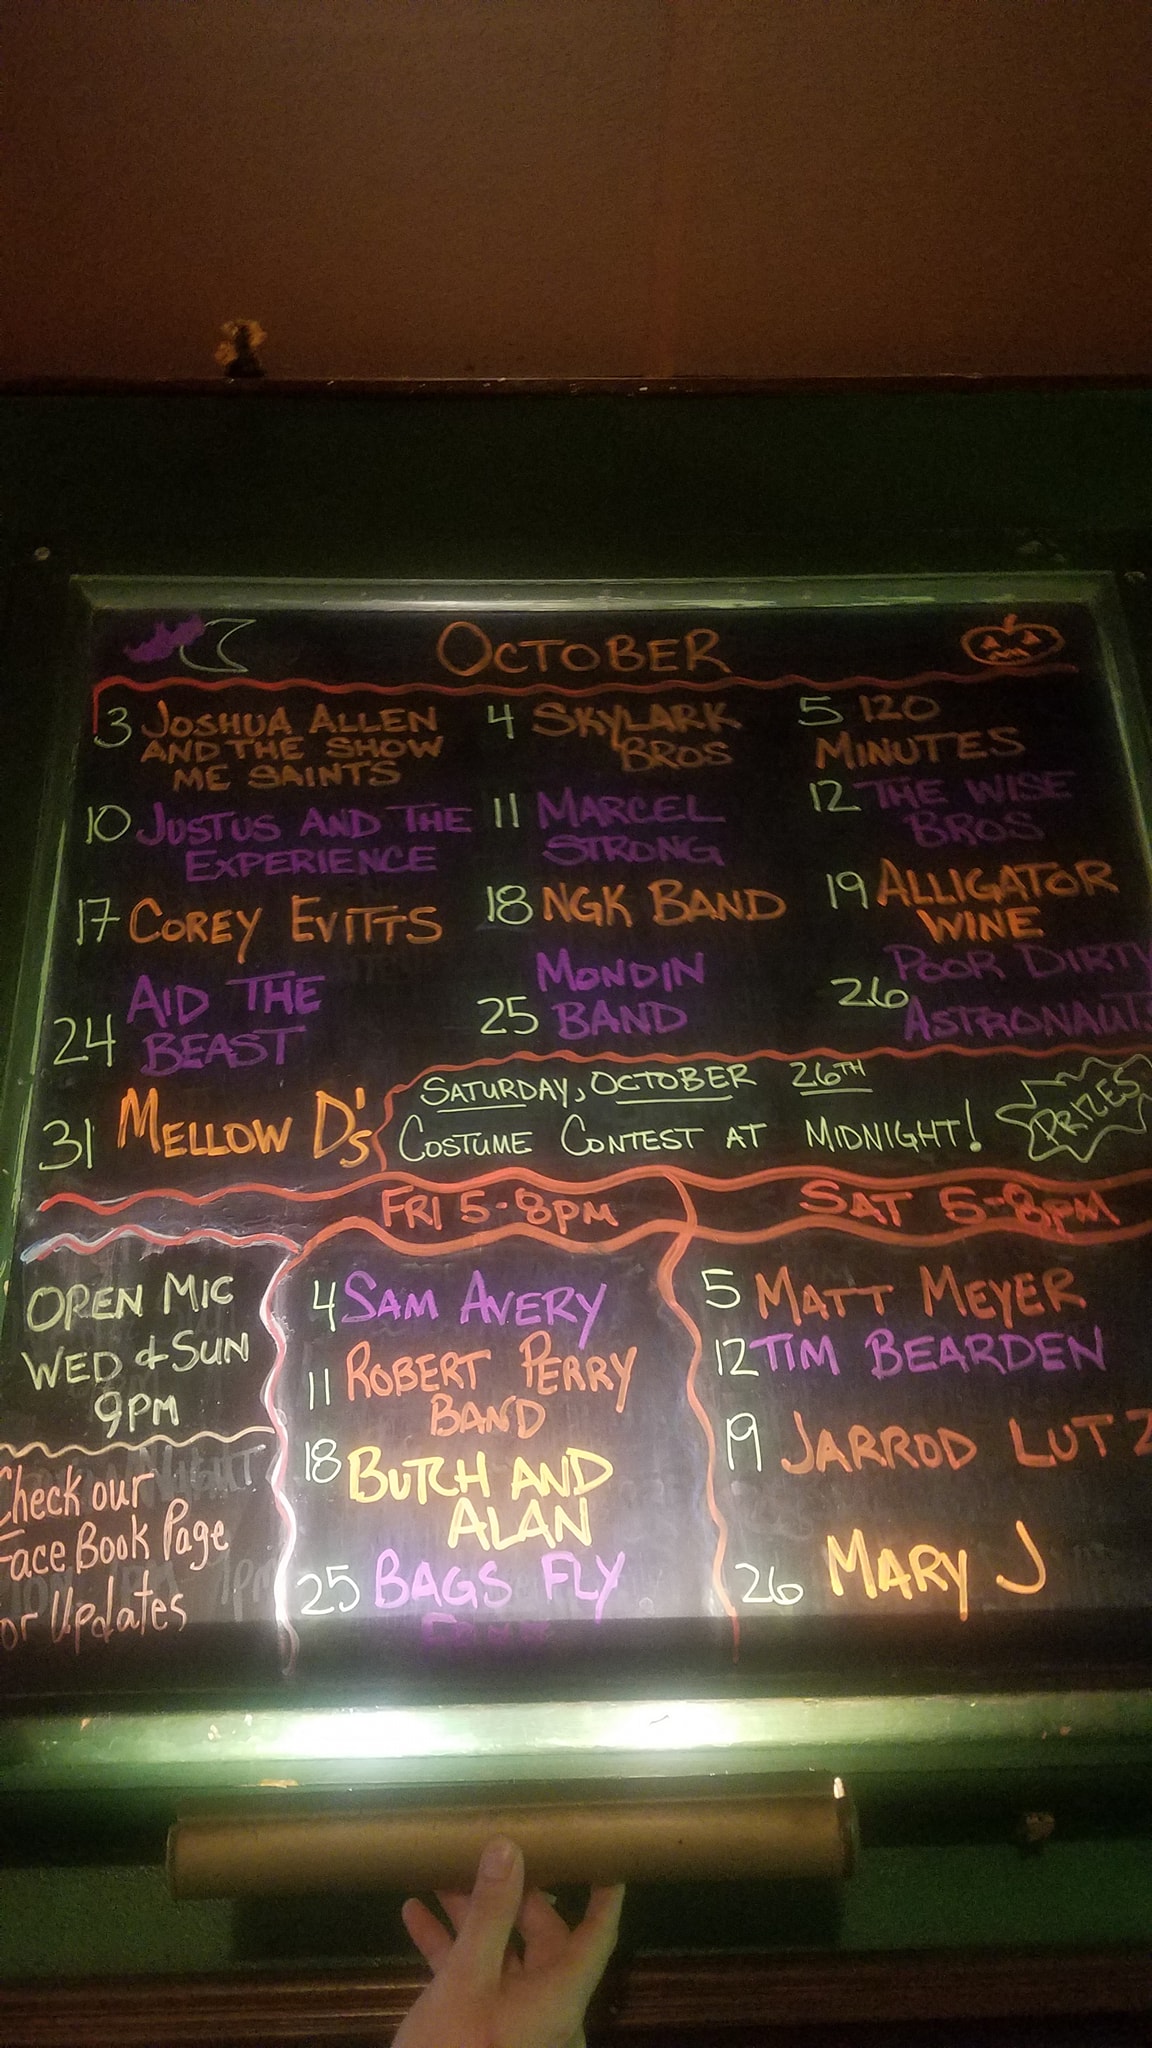 OCTOBER
3 JOSHUA ALLEN
AND THE SHOW
ME SAINTS
4 SKYLARK
BROS
5 120
MINUTES
10 JUSTUS AND THE
EXPERIENCE
11 MARCEL
STRONG
12 THE WISE
BROS
17 COREY EVITTS
18 NGK BAND
19 ALLIGATOR
WINE
24 AID THE
BEAST
25 MONDIN
BAND
26 POOR DIRTY
ASTRONAUTS
31 MELLOW D's
SATURDAY, OCTOBER 26TH
COSTUME CONTEST AT MIDNIGHT!
PRIZES
FRI 5-8PM
SAT 5-8PM
OPEN MIC
WED & SUN
9PM
Check our
Face Book Page
for Updates
4 SAM AVERY
11 ROBERT PERRY
BAND
18 BUTCH AND
ALAN
25 BAGS FLY
5 MATT MEYER
12 TIM BEARDEN
19 JARROD LUTZ
26 MARY J